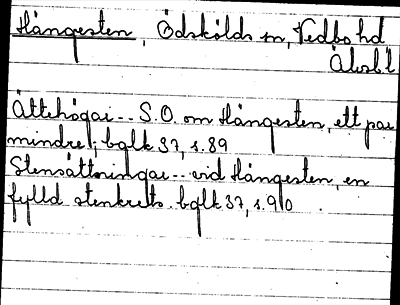 Hängesten, Ödskölds sn, Vedbo hd
Älvsb. l
Ättehögar -- S.O. om Hängesten, ett par
mindre; bqlk 37, s. 89
Stensättningar -- vid Hängesten, en
fylld stenkrets. bqlk 37, s. 90